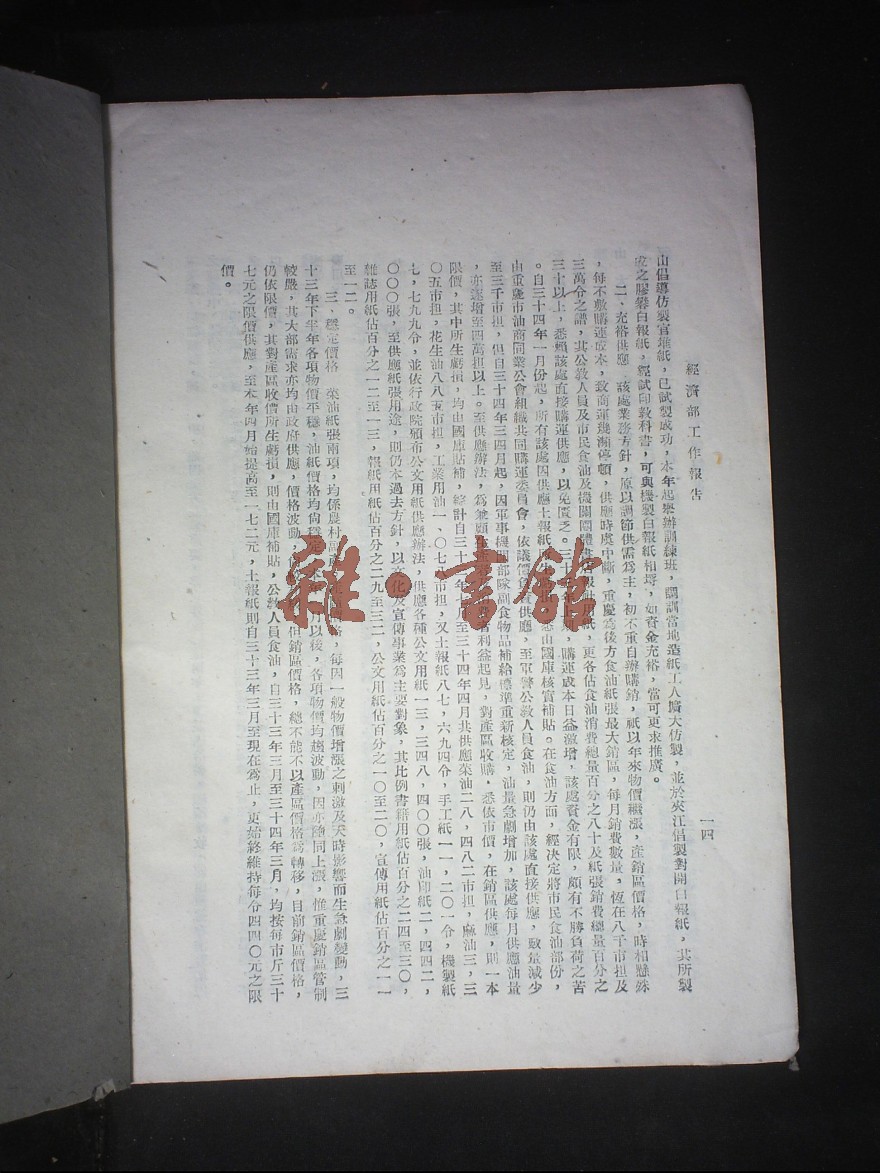 經濟部工作報告
一四
山倡導仿製官堆紙,已試製成功,本年起舉辦訓練班,調訓當地造紙工人擴大仿製,並於夾江倡製對開白報紙,其所製
成之膠礬白報紙,經試印教科書,可與機製白報紙相埒,如資金充裕,當可更求推廣。
二、充裕供應 該處業務方針,原以調節供需為主,初不重自辦購銷,祇以年來物價繼漲,產銷區價格,時相懸殊
,每不敷購運成本,致商運瀕停頓,供應時處中斷,重慶為後方食油紙張最大銷區,每月銷費數量,恆在八千市担及
三萬令之譜,其公教人員及市民食油及機關團體書報社用紙,更各佔食油消費總量百分之八十及紙張銷費總量百分之
三十以上,悉賴該處直接購運供應,以免匱乏。三十,購運成本日益激增,該處資金有限,頗有不勝負荷之苦
。自三十四年一月份起,所有該處因供應土報紙悉由國庫核實補貼。在食油方面,經決定將市民食油部份,
由重慶市油商同業公會組織共同購運委員會,依議價供應,至軍警公教人員食油,則仍由該處直接供應,數量減少
至三千市担,但自三十四年三四月起,因軍事機關部隊副食物品補給標準重新核定,油量急劇增加,該處每月供應油量
,亦遂增至四萬担以上。至供應辦法,為兼顧利益起見,對產區收購,悉依市價,在銷區供應,則一本
限價,其中所生虧損,均由國庫貼補,綜計自三十月至三十四年四月共供應菜油二八,四八二市担,麻油三,三
〇五市担,花生油八八五市担,工業用油一、〇七市担,又土報紙八七,六九四令,手工紙一一,二〇一令,機製紙
七,七九九令,並依行政院頒布公文用紙供應辦法,供應各種公文用紙一三,三四八,四〇〇張,油印紙二,四四二,
〇〇〇張,至供應紙張用途,則仍本過去方針,以文化及宣傳事業為主要對象,其比例書籍用紙佔百分之二四至三〇,
雜誌用紙佔百分之一二至一三,報紙用紙佔百分之二九至三二,公文用紙佔百分之一〇至二〇,宣傳用紙佔百分之一一
至一二。
三、穩定價格 菜油紙張兩項,均係農村副產價格,每因一般物價增漲之刺激及天時影響而生急劇變動,三
十三年下半年各項物價平穩,油紙價格均尚穩定月以後,各項物價均趨波動,因亦隨同上漲,惟重慶銷區管制
較嚴,其大部需求亦均由政府供應,價格波動但銷區價格,總不能不以產區價格為轉移,目前銷區價格,
仍依限價,其對產區收價所生虧損,則由國庫補貼,公教人員食油,自三十三年三月至三十四年三月,均按每市斤三十
七元之限價供應,至本年四月始提高至一七二元,土報紙則自三十三年三月至現在為止,更始終維持每令四四〇元之限
價。
雜·書館